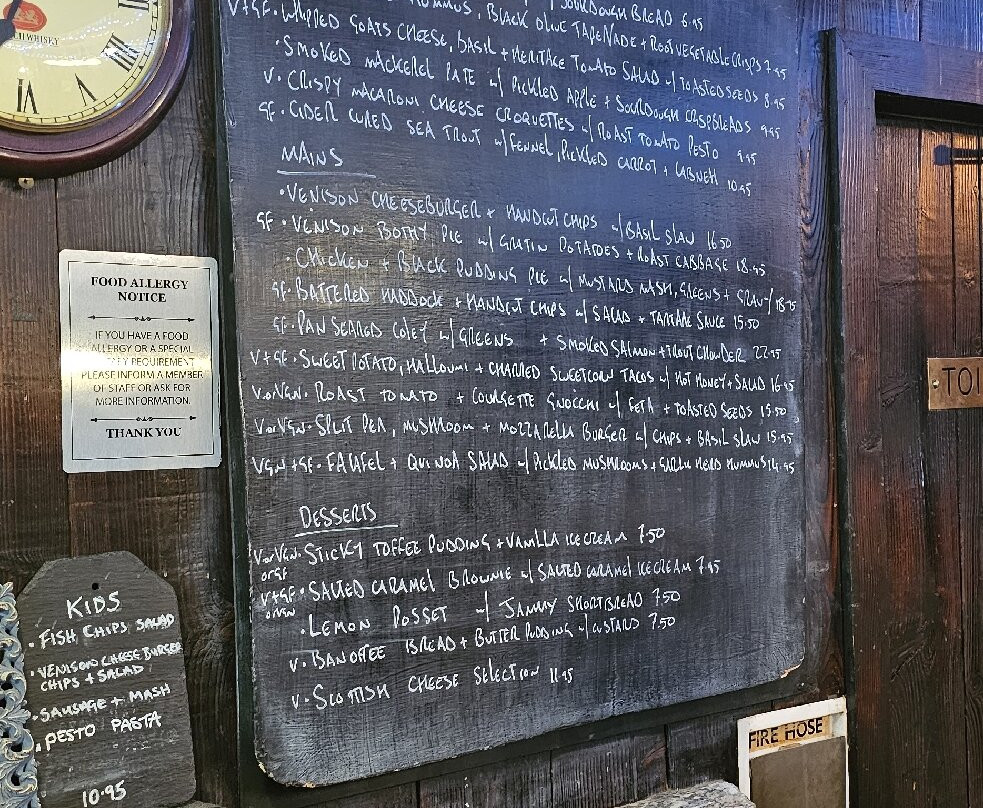 HUMMUS, BLACK OLIVE TAPENADE + ROOT VEGETABLE CRISPS 7.95
SOURDOUGH BREAD 6.95
V+GF. WHIPPED GOATS CHEESE, BASIL + HERITAGE TOMATO SALAD w/ TOASTED SEEDS 8.95
· SMOKED MACKEREL PATE w/ PICKLED APPLE + SOURDOUGH CRISPBREADS 9.95
V. CRISPY MACARONI CHEESE CROQUETTES w/ ROAST TOMATO PESTO 9.95
GF. CIDER CURED SEA TROUT w/ FENNEL, PICKLED CARROT + LABNEH 10.95
MAINS
· VENISON CHEESEBURGER + HANDCUT CHIPS w/ BASIL SLAW 16.50
GF · VENISON BOTHY PIE w/ GRATIN POTATOES + ROAST CABBAGE 18.95
· CHICKEN + BLACK PUDDING PIE w/ MUSTARD MASH, GREENS + GRAVY 18.95
GF · BATTERED HADDOCK + HANDCUT CHIPS w/ SALAD + TARTARE SAUCE 15.50
GF. PAN SEARED COLEY w/ GREENS + SMOKED SALMON + TROUT CHOWDER 22.95
V+GF · SWEET POTATO, HALLOUMI + CHARRED SWEETCORN TACOS w/ HOT HONEY + SALAD 16.95
V.orVGN. ROAST TOMATO + COURGETTE GNOCCHI w/ FETA + TOASTED SEEDS 15.50
V orVGN · SPLIT PEA, MUSHROOM + MOZZARELLA BURGER w/ CHIPS + BASIL SLAW 15.95
VGN +GF · FALAFEL + QUINOA SALAD w/ PICKLED MUSHROOMS + GARLIC HERB HUMMUS 14.95
DESSERTS
V.orVGN. STICKY TOFFEE PUDDING + VANILLA ICECREAM 7.50
orGF
V+GF · SALTED CARAMEL BROWNIE w/ SALTED CARAMEL ICECREAM 7.95
orVGN
· LEMON POSSET w/ JAMMY SHORTBREAD 7.50
V · BANOFFEE BREAD + BUTTER PUDDING w/ CUSTARD 7.50
V · SCOTTISH CHEESE SELECTION 11.95
WHISKY
FOOD ALLERGY
NOTICE
IF YOU HAVE A FOOD
ALLERGY OR A SPECIAL
REQUIREMENT
PLEASE INFORM A MEMBER
OF STAFF OR ASK FOR
MORE INFORMATION.
THANK YOU
KIDS
· FISH CHIPS SALAD
· VENISON CHEESE BURGER
CHIPS + SALAD
· SAUSAGE + MASH
· PESTO PASTA
10.95
TOI
FIRE HOSE